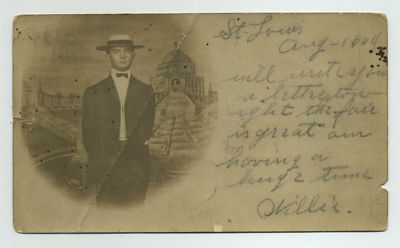 St. Louis
Aug - 1904
will write you
a letter to
night the fair
is great am
having a
huge time
Willie.